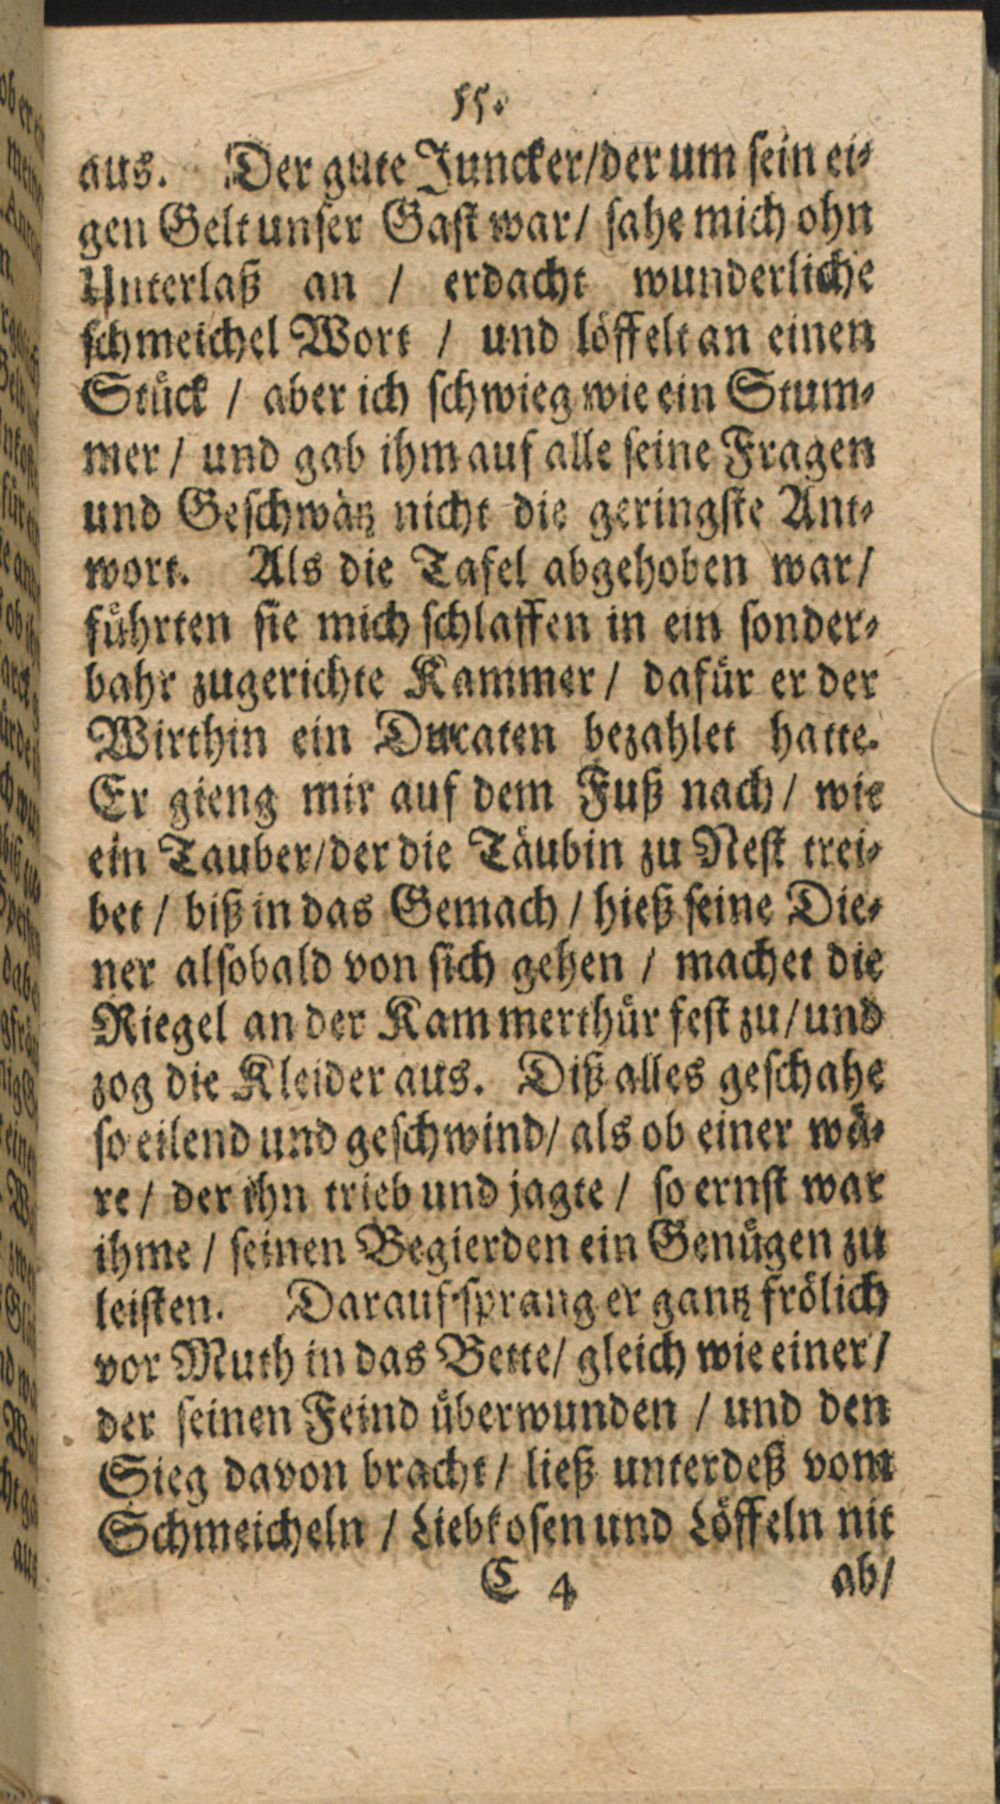 55.
aus. Der gute Juncker/der um sein ei-
gen Gelt unser Gast war/ sahe mich ohn
Unterlaß an / erdacht wunderliche
schmeichel Wort / und löffelt an einen
Stück / aber ich schwieg wie ein Stum-
mer / und gab ihm auf alle seine Fragen
und Geschwätz nicht die geringste Ant-
wort. Als die Tafel abgehoben war/
führten sie mich schlaffen in ein sonder-
bahr zugerichte Kammer / dafür er der
Wirthin ein Ducaten bezahlet hatte.
Er gieng mir auf dem Fuß nach / wie
ein Tauber/der die Täubin zu Nest trei-
bet / biß in das Gemach / hieß seine Die-
ner alsobald von sich gehen / machet die
Riegel an der Kammerthür fest zu/und
zog die Kleider aus. Diß alles geschahe
so eilend und geschwind/ als ob einer wä-
re / der ihn trieb und jagte / so ernst war
ihme / seinen Begierden ein Genügen zu
leisten. Darauf sprang er gantz frölich
vor Muth in das Bette/ gleich wie einer /
der seinen Feind überwunden / und den
Sieg davon bracht / ließ unterdeß vom
Schmeicheln / Liebkosen und Löffeln nit
C 4 ab/